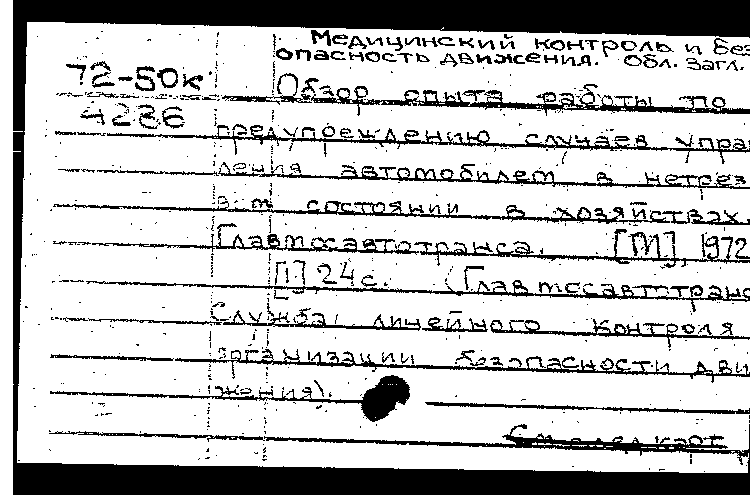 Медицинский контроль и без
опасность движения. Обл. загл.
72-50к
4286
Обзор опыта работы по
предупреждению случаев управ
ления автомобилем в нетрез
вом состоянии в хозяйствах
Главмосавтотранса. [М], 1972
[1], 24 с. (Главмосавтотранс
Служба линейного контроля
организации безопасности дви
жения).
См след карт